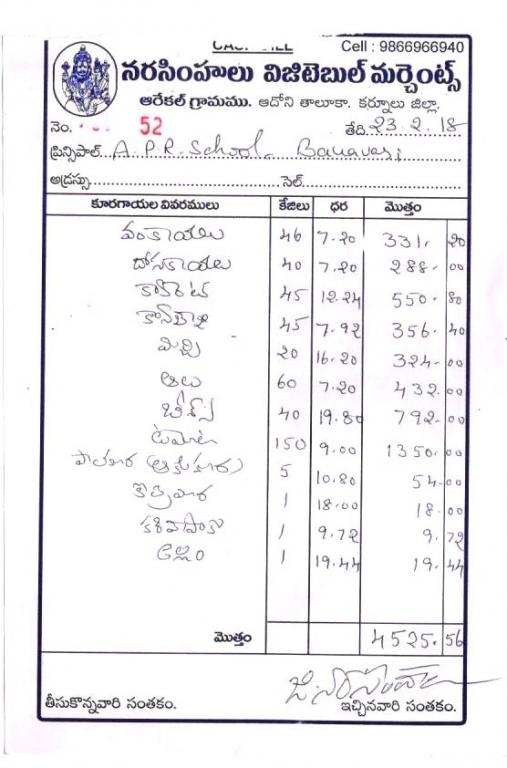 Cell : 9866966940
నరసింహులు విజిటెబుల్ మర్చెంట్స్
ఆరేకల్ గ్రామము. ఆదోని తాలూకా. కర్నూలు జిల్లా.
నెం. 52 తేది. 23.2.18
ప్రిన్సిపాల్ A.P.R. School. Banavasi
అడ్రస్సు సెల్
కూరగాయల వివరములు కేజీలు ధర మొత్తం
వంకాయలు 46 7.20 331. 20
దోసకాయలు 40 7.20 288. 00
కారెట్ 45 12.24 550. 80
45 7.92 356. 40
మిర్చి 20 16.20 324. 00
ఆలు 60 7.20 432. 00
బీన్స్ 40 19.80 792. 00
టమోట 150 9.00 1350. 00
పాలకూర (ఆకుకూర) 5 10.80 54. 00
కొత్తిమీర 1 18.00 18. 00
కరివేపాకు 1 9.72 9. 72
అల్లం 1 19.44 19. 44
మొత్తం 4525. 56
తీసుకొన్నవారి సంతకం. ఇచ్చినవారి సంతకం.